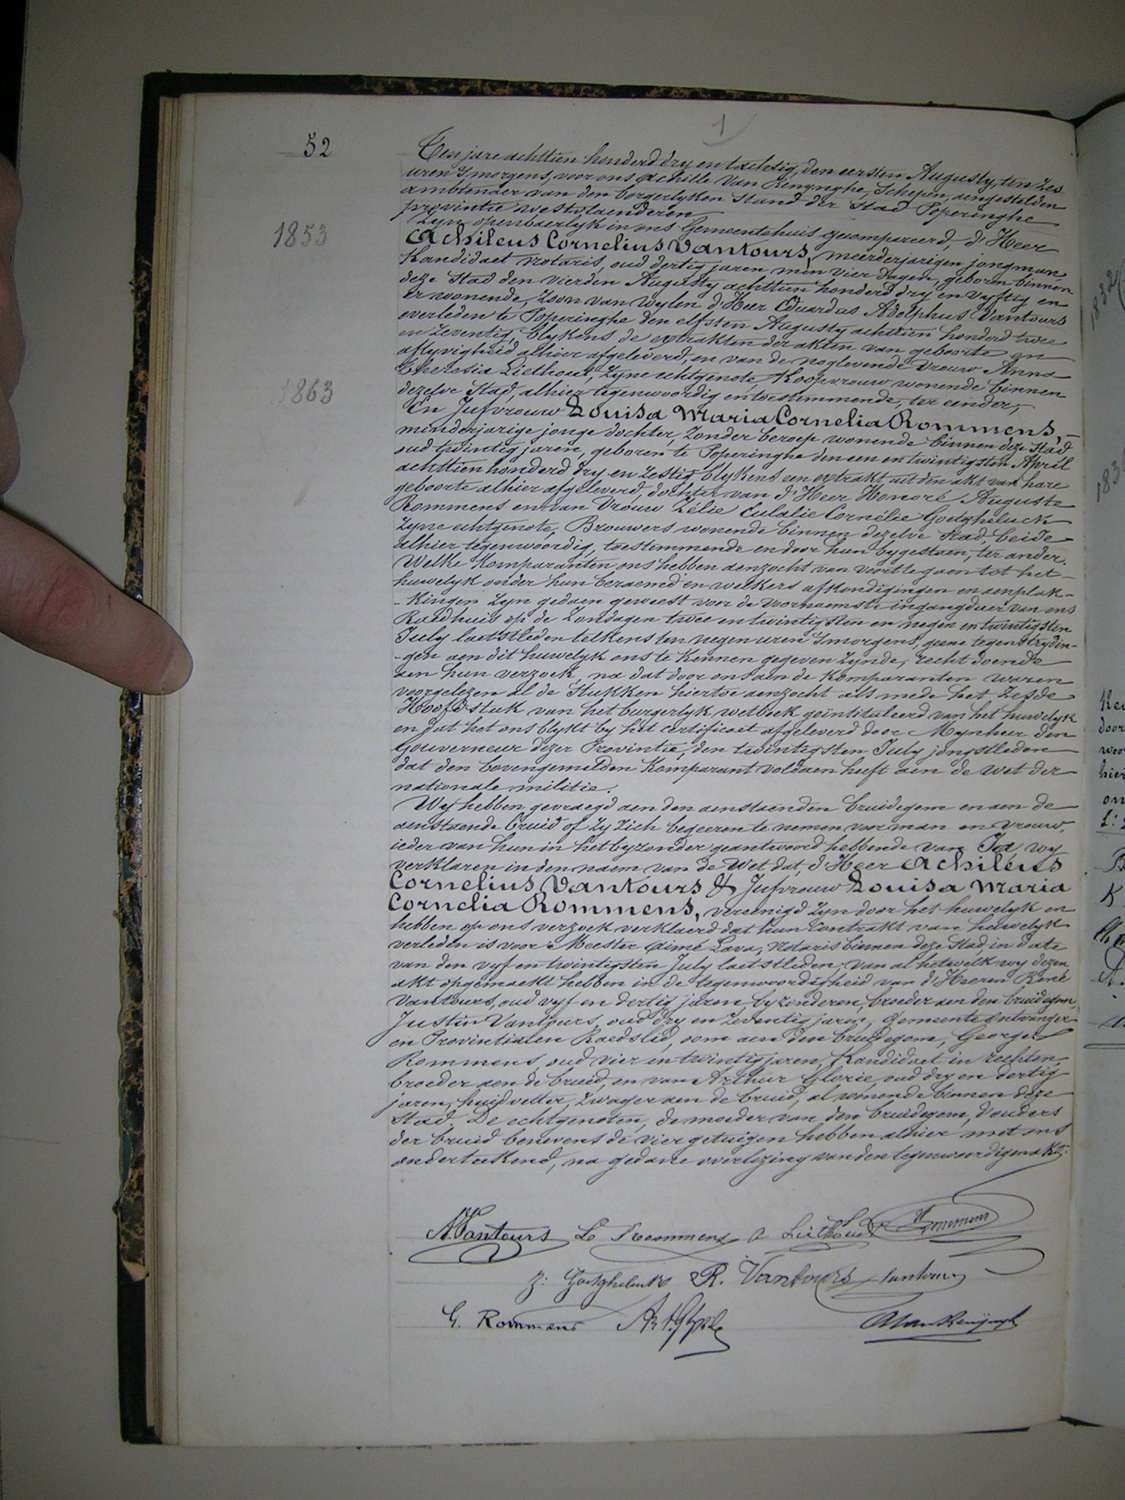 1
52
Ten jare achttien honderd dry en tachtig, den eersten Augusty, ten zes
uren 's morgens, voor ons Achille Van Renynghe, Schepen, aengestelden
ambtenaer van den borgerlyken stand der stad Poperinghe
provintie Westvlaenderen
Zyn openbaerlyk in ons Gemeentehuis gecompareerd, d'Heer
1853
Achileus Cornelius Vantours, meerderjarigen jongman,
Kandidaet notaris, oud dertig jaren min vier dagen, geboren binnen
deze Stad den vierden Augusty achttien honderd dry en vyftig en
er wonende, zoon van wylen d'Heer Eduardus Adolphus Vantours
overleden te Poperinghe den elfsten Augusty achttien honderd twee
en zeventig, blykens de extrakten der akten van geboorte en
aflyvigheid alhier afgeleverd, en van de noglevende Vrouw Anna
Theresia Liethoudt, zyne echtgenote, Koopvrouw wonende binnen
dezelve Stad, alhier tegenwoordig en toestemmende, ter eender,
1863
En Jufvrouw Louisa Maria Cornelia Rommens,
minderjarige jonge dochter, zonder beroep wonende binnen deze Stad
oud twintig jaren, geboren te Poperinghe den een en twintigsten April
achttien honderd dry en zestig blykens een extrakt uit den akt van hare
geboorte alhier afgeleverd, dochter van d'Heer Honoré Auguste
Rommens en van Vrouw Zélie Eulalie Cornélie Goetgheluck
zyne echtgenote, Brouwers wonende binnen dezelve stad, beide
alhier tegenwoordig, toestemmende en door hun bygestaen, ter ander.
Welke Komparanten ons hebben aenzocht van voort te gaen tot het
huwelyk onder hun beraemd en welkers afkondigingen en aenplak-
-kingen zyn gedaen geweest voor de voornaemste ingangdeur van ons
Raedhuis op de Zondagen twee en twintigsten en negen en twintigsten
July laetstleden telkens ten negen uren 's morgens, geene tegenstrydin-
-gen aen dit huwelyk ons te kennen gegeven zynde, recht doende
aen hun verzoek, na dat door ons aen de Komparanten waren
voorgelezen al de Stukken hiertoe aenzocht als mede het zesde
Hoofdstuk van het burgerlyk wetboek geïntituleerd van het huwelyk
en dat het ons blykt by het certificaet afgeleverd door Mynheer den
Gouverneur dezer Provintie, den twintigsten July jongstleden
dat den bovengemelden Komparant voldaen heeft aen de wet der
nationale militie.
Wy hebben gevraegd aen den aenstaenden bruidegom en aen de
aenstaende bruid of zy zich begeeren te nemen voor man en vrouw,
ieder van hun in het byzonder geantwoord hebbende van Ja, wy
verklaren in den naem van de Wet dat, d'Heer Achileus
Cornelius Vantours & Jufvrouw Louisa Maria
Cornelia Rommens, vereenigd zyn door het huwelyk en
hebben op ons verzoek verklaerd dat hun contrakt van huwelyk
verleden is voor Meester Aimé Lava, notaris binnen deze Stad, in date
van den vyf en twintigsten July laetstleden, van al hetwelk wy dezen
akt opgemaekt hebben in de tegenwoordigheid van d'Heeren René
Vantours, oud vyf en dertig jaren, byzonderen, broeder aen den bruidegom,
Justin Vantours, oud dry en zeventig jaren, gemeente ontvanger
en Provintialen Raedslid, oom aen den bruidegom, George
Rommens, oud vier en twintig jaren, Kandidaet in rechten,
broeder aen de bruid, en van Arthur Glorie, oud dry en dertig
jaren, huidvetter, zwager aen de bruid, al wonende binnen deze
stad. De echtgenoten, de moeder van den bruidegom, d'ouders
der bruid benevens de vier getuigen hebben alhier met ons
onderteekend, na gedane overlezing van den tegenwoordigen akt.
A. Vantours L Rommens A Liethoudt H Rommens
Z. Goetgheluck R. Vantours Vantours
G. Rommens AVanRenynghe